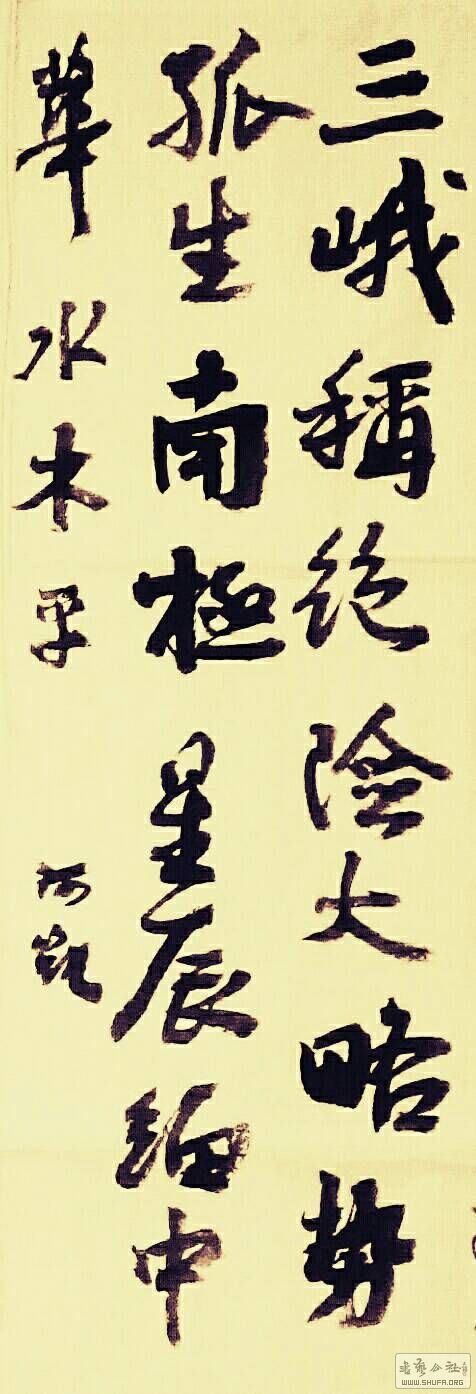 三峨稱絕險大略勢
孤生南極星辰緬中
華水木平
書藝公社
WWW.SHUFA.ORG